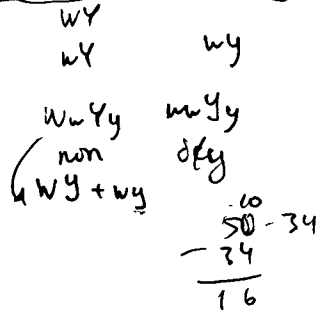 WY
wY wy
WwYy wwYy
non
WY + wy
50 - 34
- 34
16